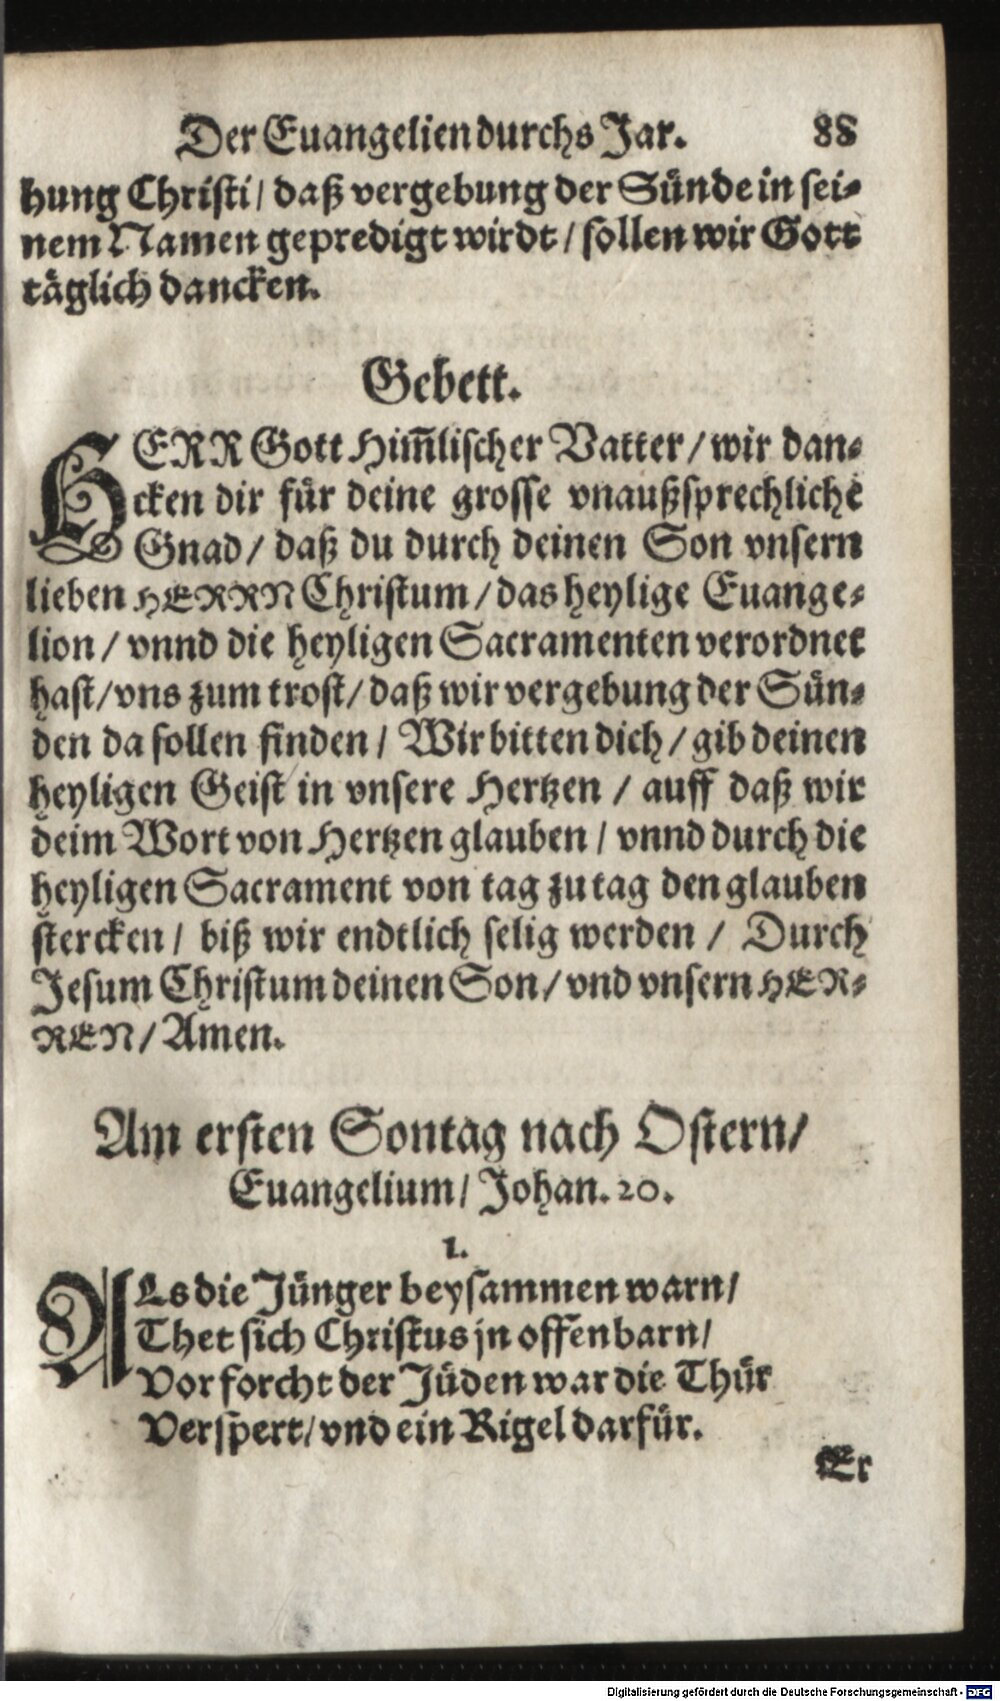 Der Euangelien durchs Jar. 88
hung Christi / daß vergebung der Sünde in sei-
nem Namen gepredigt wirdt / sollen wir Gott
täglich dancken.
Gebett.
HERR Gott Him̃lischer Vatter / wir dan-
cken dir für deine grosse vnaußsprechliche
Gnad / daß du durch deinen Son vnsern
lieben HERRN Christum / das heylige Euange-
lion / vnnd die heyligen Sacramenten verordnet
hast / vns zum trost / daß wir vergebung der Sün-
den da sollen finden / Wir bitten dich / gib deinen
heyligen Geist in vnsere Hertzen / auff daß wir
deim Wort von Hertzen glauben / vnnd durch die
heyligen Sacrament von tag zu tag den glauben
stercken / biß wir endtlich selig werden / Durch
Jesum Christum deinen Son / vnd vnsern HER-
REN / Amen.
Am ersten Sontag nach Ostern /
Euangelium / Johan. 20.
1.
ALs die Jünger beysammen warn /
Thet sich Christus jn offenbarn /
Vor forcht der Jüden war die Thür
Verspert / vnd ein Rigel darfür.
Er
Digitalisierung gefördert durch die Deutsche Forschungsgemeinschaft - DFG